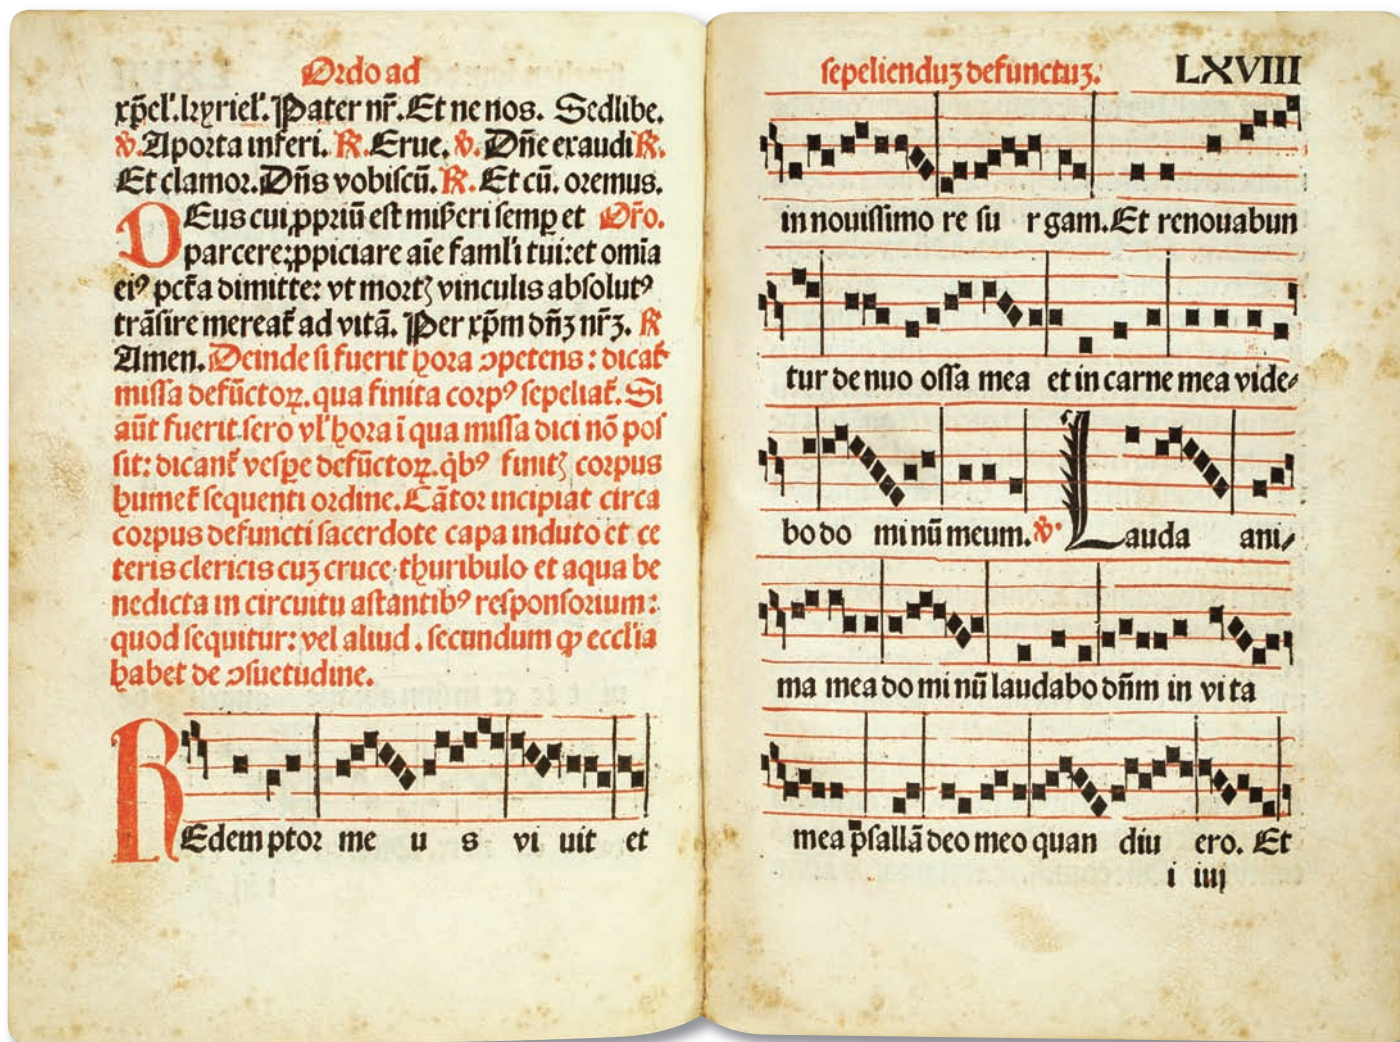 Ordo ad
xp̃el'.kyriel'. Pater nr̃. Et ne nos. Sed libe.
℣. A porta inferi. ℟. Erue. ℣. Dñe exaudi ℟.
Et clamor. Dñs vobiscũ. ℟. Et cũ. oremus.
DEus cui ꝓpriũ est mis̃eri semꝑ et Or̃o.
parcere: ꝓpiciare aĩe famli tui: et omĩa
eiꝰ pctã dimitte: vt mortꝫ vinculis absolutꝰ
trãsire mereat̃ ad vitã. Per xp̃m dñꝫ nr̃ꝫ. ℟
Amen. Deinde si fuerit hora ↄpetens: dicat̃
missa defũctoꝝ. qua finita corpꝰ sepeliat̃. Si
aũt fuerit sero vl' hora ĩ qua missa dici nõ pos
sit: dicant̃ vesꝑe defũctoꝝ. q̃bꝰ finitꝫ corpus
humet̃ sequenti ordine. Cãtor incipiat circa
corpus defuncti sacerdote capa induto et ce
teris clericis cuꝫ cruce thuribulo et aqua be
nedicta in circuitu astantibꝰ responsorium:
quod sequitur: vel aliud. secundum ꝙ ecclĩa
habet de ↄsuetudine.
REdemptor me u s vi uit et
sepelienduꝫ defunctuꝫ. LXVIII
in nouissimo re su r gam. Et renouabun
tur de nuo ossa mea et in carne mea vide⸗
bo do minũ meum. ℣. Lauda ani⸗
ma mea do mi nũ laudabo dñm in vi ta
mea psallã deo meo quan diu ero. Et
i iiij